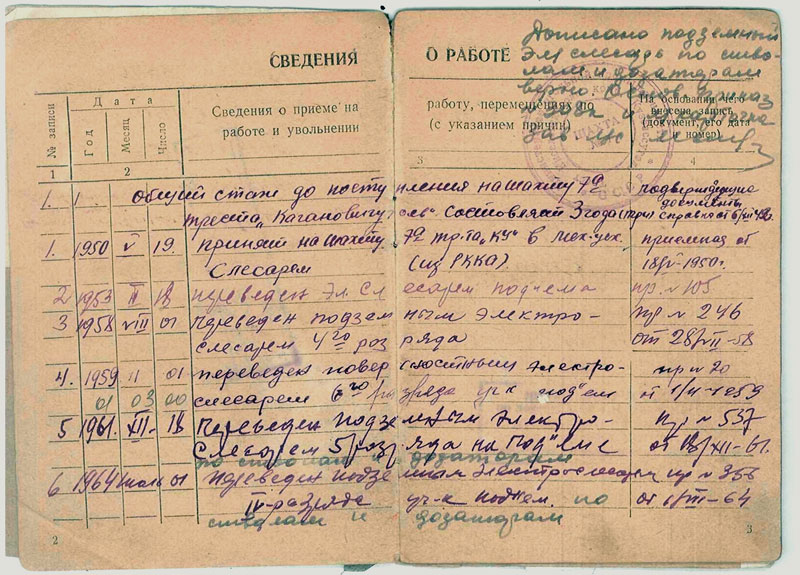 СВЕДЕНИЯ О РАБОТЕ
Дописано подземный
эл слесарь по ство-
лам и дозаторам
верно. Основ. приказ
№ записи
Дата
Год
Месяц
Число
Сведения о приеме на работу, перемещениях по
работе и увольнении (с указанием причин)
На основании чего
внесена запись
(документ, его дата
и номер)
1 2 3 4
1. Общий стаж до поступления на шахту 7а подтверждающие
документы
треста „Кагановичуголь“ составляет 3 года (три) справка от
1. 1950 V 19. Принят на шахту 7а тр-та „КУ“ в мех. цех. приемназ от
Слесарем (из РККА) 18/V-1950г.
2 1953 III 18 переведен Эл. Слесарем подъема пр. № 105
3 1958 VIII 01 Переведен подземным электро- пр № 246
слесарем 4го разряда от 28/VII-58
4. 1959 II 01 переведен поверхностным электро- пр № 20
01 03 00
слесарем 6го разряда уч-к под"ем от 1/II-1959
5 1961. XII- 18 Переведен подземным электро- пр № 537
слесарем 5 разряда на под"еме от 18/XII-61.
по стволам и дозаторам
6 1964 июль 01 переведен подземным электрослесарем пр № 356
IV-разряда уч-к подъем. по от 1/VII-64
стволам и дозаторам
2
3